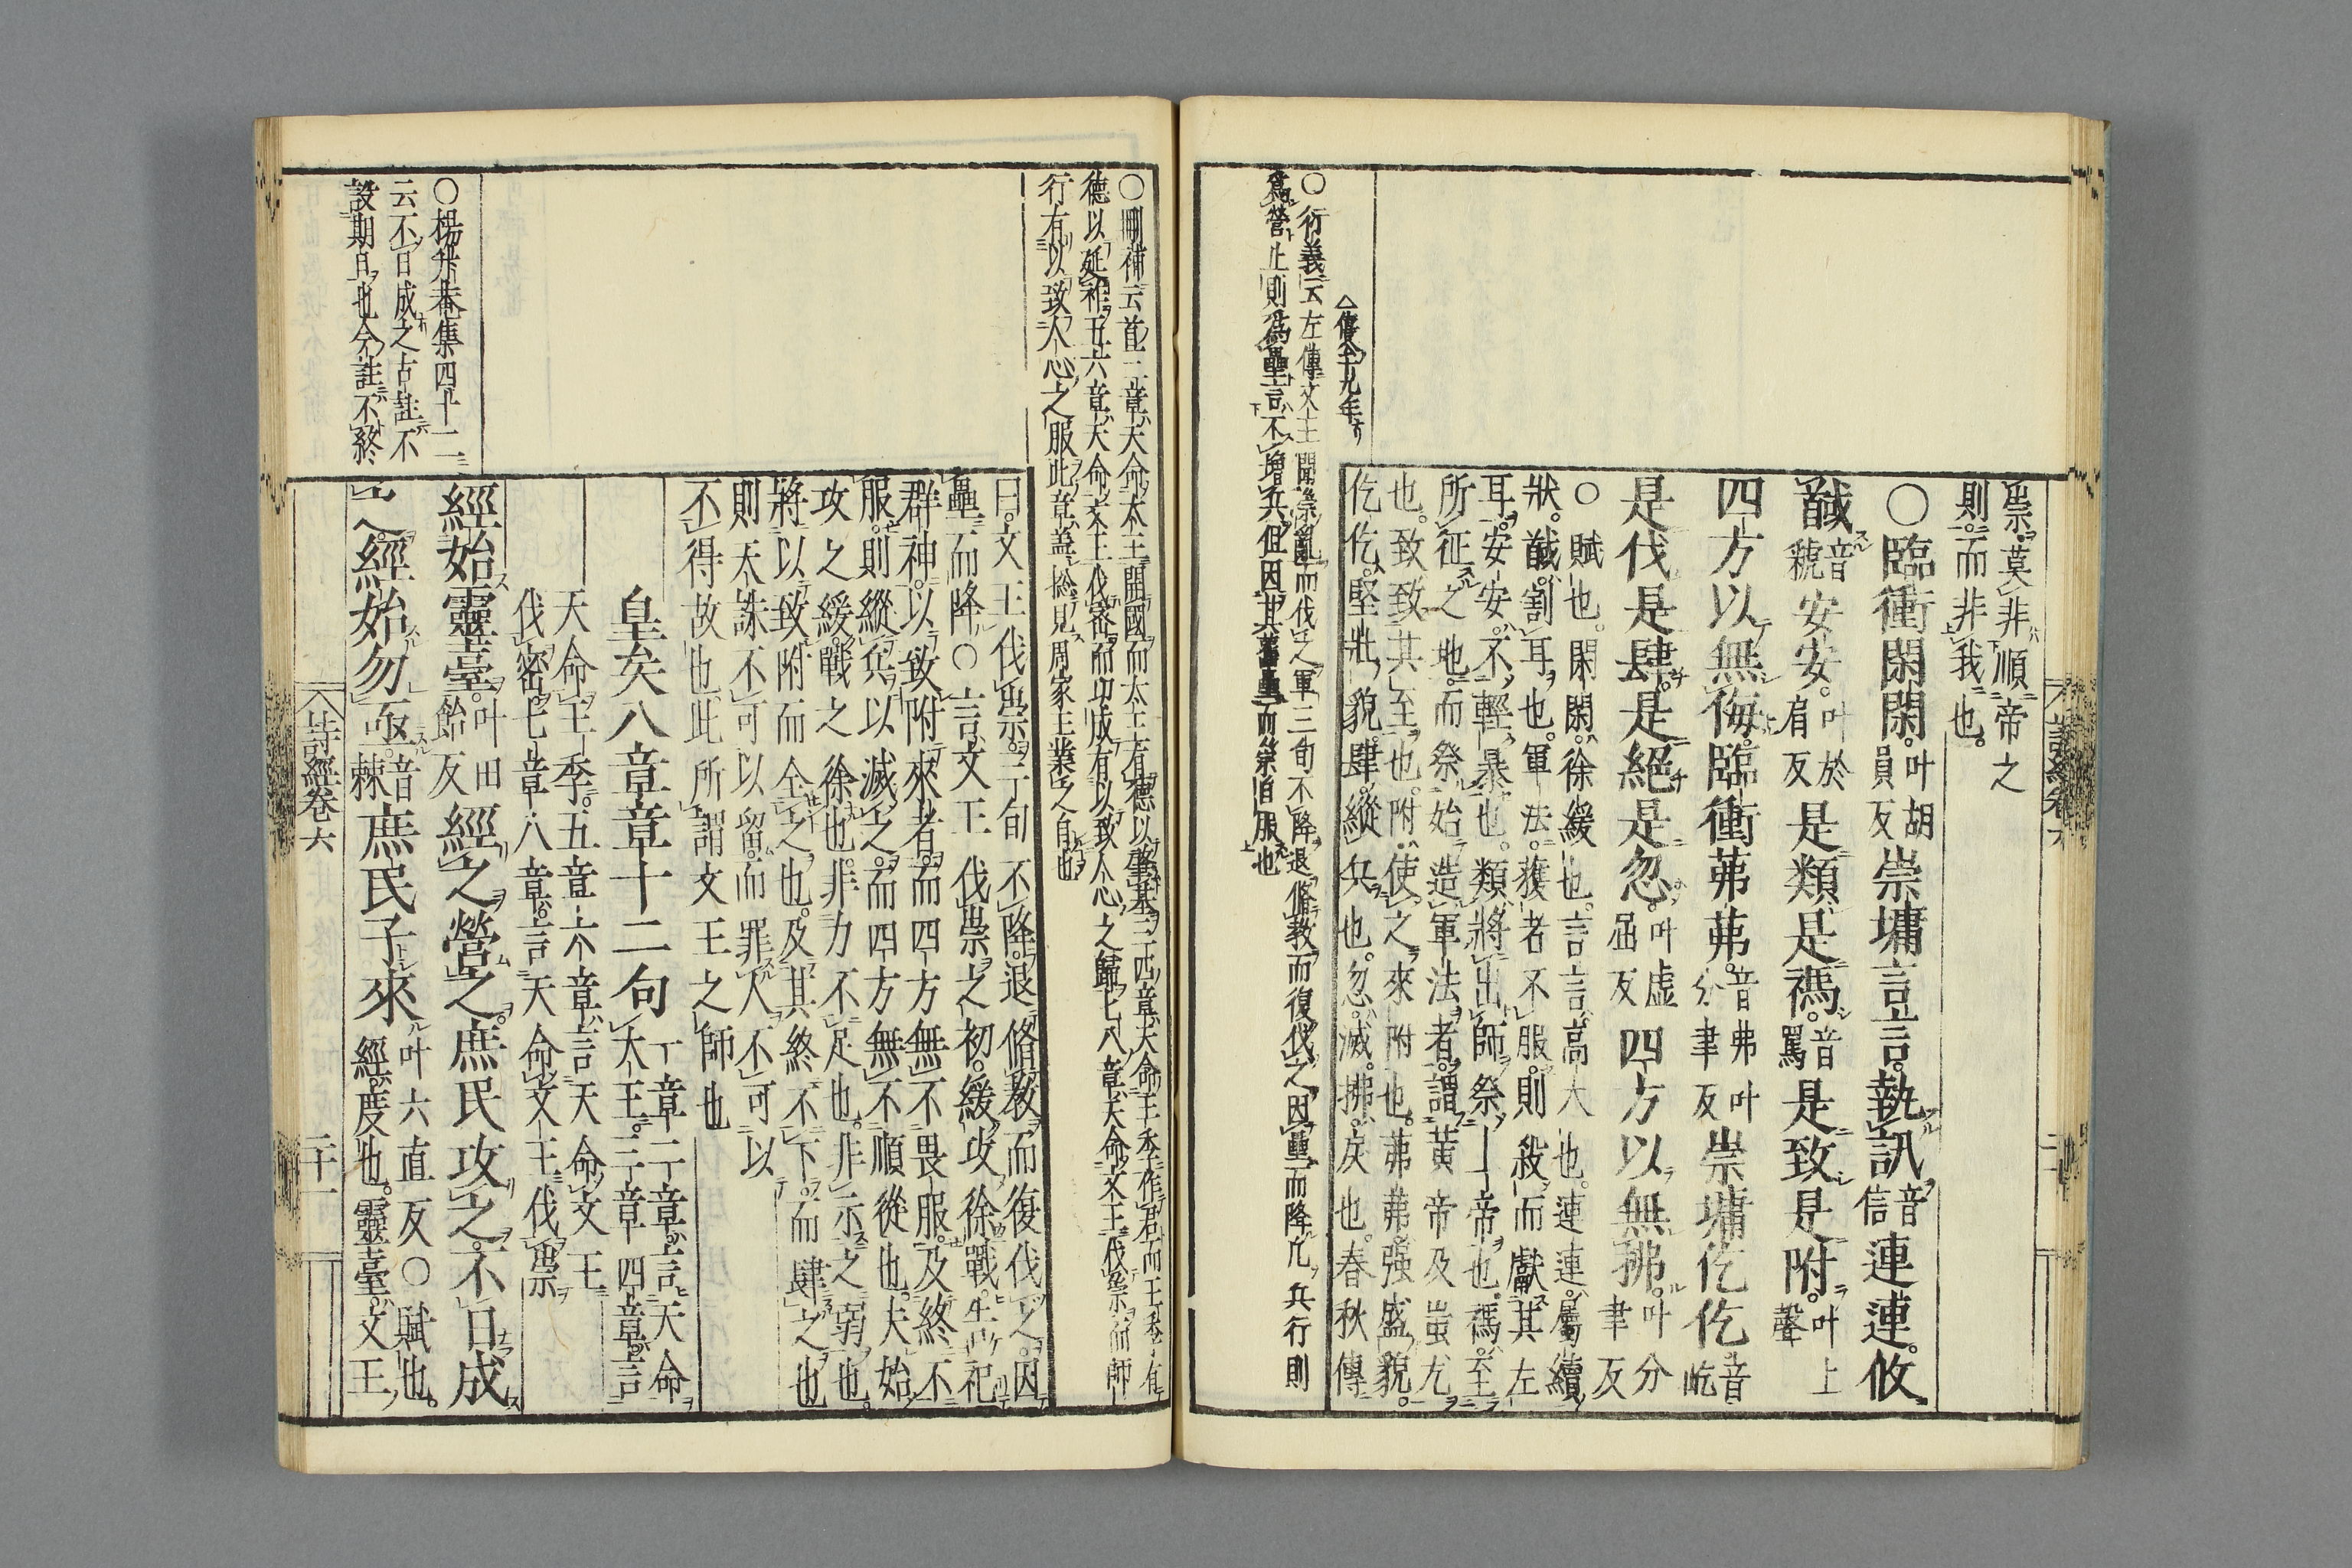 崇莫非順帝之
則而非我也
○臨衝閑閑叶胡員反崇墉言言執訊音信連連攸
馘音虢安安叶於肩反是類是禡音罵是致是附叶上聲
四方以無侮臨衝茀茀音弗叶分聿反崇墉仡仡音屹
是伐是肆是絕是忽叶虛屈反四方以無拂叶分聿反
○賦也閑閑徐緩也言言高大也連連屬續
狀馘割耳也軍法獲者不服則殺而獻其左
耳安安不輕暴也類將出師祭上帝也禡至
所征之地而祭始造軍法者謂黃帝及蚩尤
也致致其至也附使之來附也茀茀强盛貌
仡仡堅壯貌肆縱兵也忽滅拂戾也春秋傳
△僖公十九年
○衍義云左傳文王聞崇亂而伐之軍三旬不降退脩教而復伐之因壘而降凡兵行則
爲營止則爲壘言不增兵但因其舊壘而崇自服也
詩經卷六
○刪補云首二章天命太王開國而太王有德以肇基三四章天命王季作君而王季有
德以延祚五六章天命文王伐密而功成有以致人心之歸七八章天命文王伐崇而師
行有以致人心之服此章蓋捴見周家王業之自也
曰文王伐崇三旬不降退脩教而復伐之因
壘而降○言文王伐崇之初緩攻徐戰告祀
群神以致附來者而四方無不畏服及終不
服則縱兵以滅之而四方無不順從也夫始
攻之緩戰之徐也非力不足也非示之弱也
將以致附而全之也及其終不下而肆之也
則天誅不可以留而罪人不可以
不得故也此所謂文王之師也
皇矣八章章十二句一章二章言天命
太王三章四章言
天命王季五章六章言天命文王
伐密七章八章言天命文王伐崇
○楊升菴集四十二
云不日成之古註不
設期日也今註不終
經始靈臺叶田飴反經之營之庶民攻之不日成
之經始勿亟音棘庶民子來叶六直反○賦也
經度也靈臺文王
詩經卷六
二十一